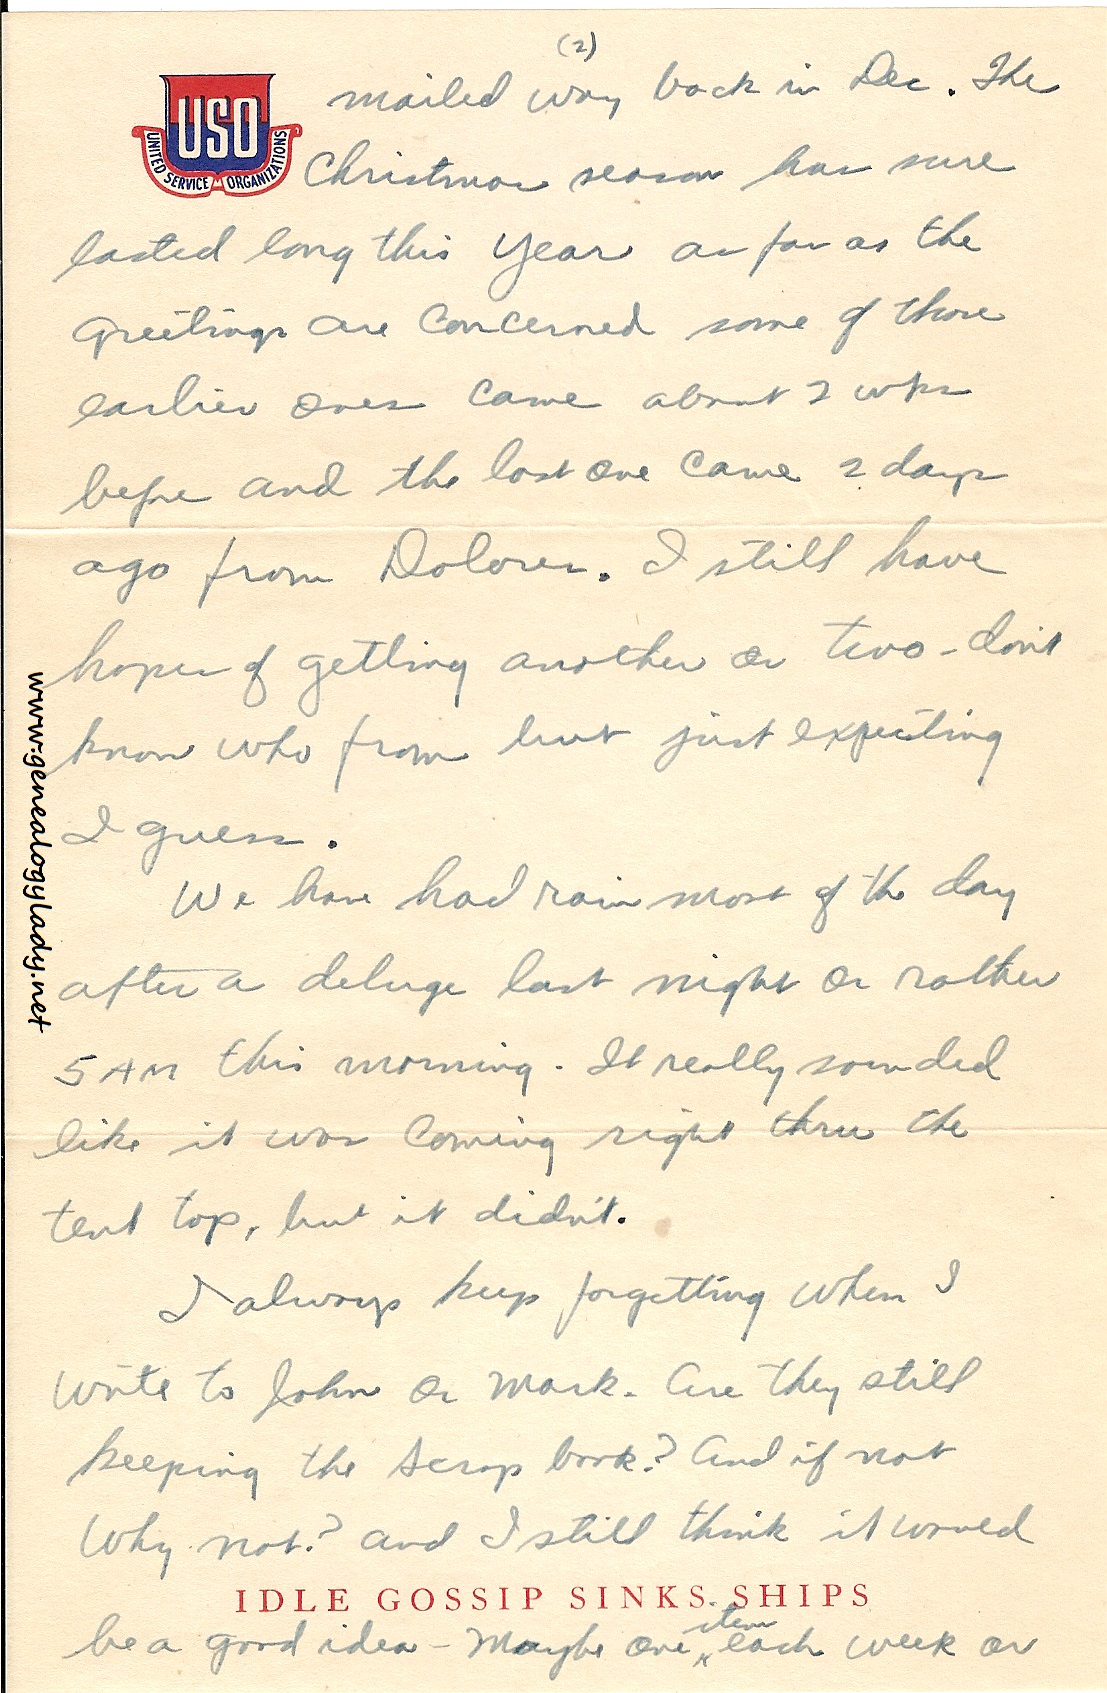 (2)
USO
UNITED SERVICE ORGANIZATIONS
mailed way back in Dec. The
Christmas season has sure
lasted long this year as far as the
greetings are concerned some of those
earlier ones came about 2 wks
before and the last one came 2 days
ago from Dolores. I still have
hopes of getting another or two - don't
know who from but just expecting
I guess.
We have had rain most of the day
after a deluge last night or rather
5 AM this morning. It really sounded
like it was coming right thru the
tent top, but it didn't.
I always keep forgetting when I
write to John or Mark. Are they still
keeping the scrap book? And if not
why not? And I still think it would
IDLE GOSSIP SINKS SHIPS
be a good idea - Maybe one item each week or
www.genealogylady.net